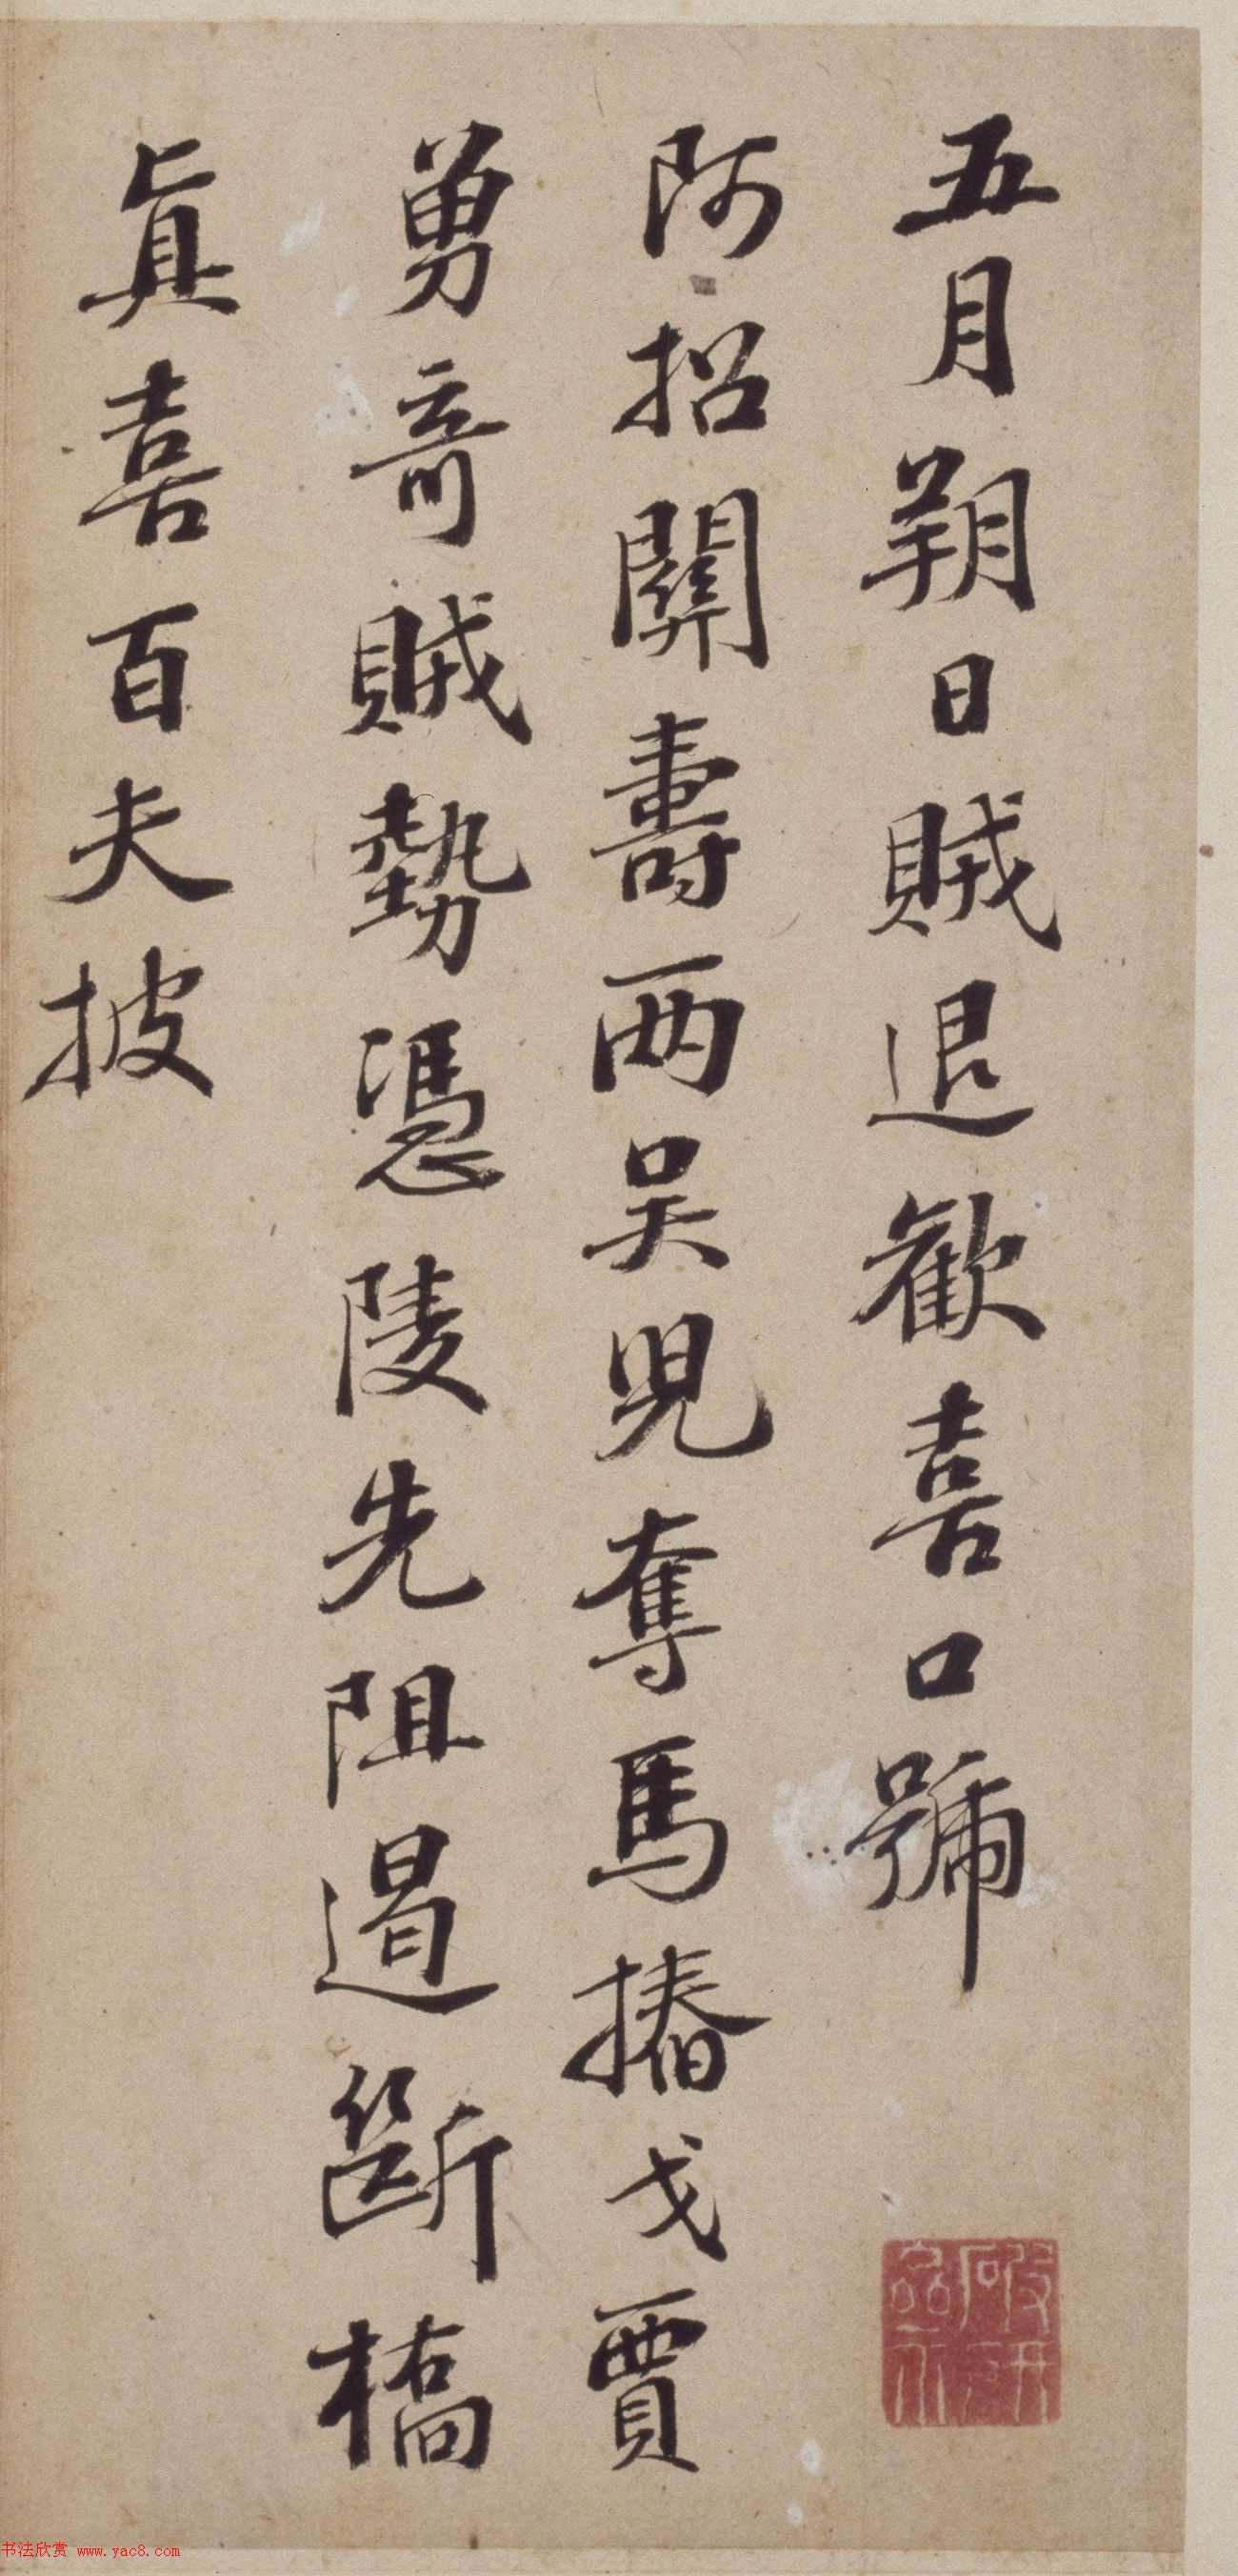 五月朔日賊退歡喜口號
阿招關壽兩吳兒奪馬摏戈賈
勇奇賊勢憑陵先阻遏斷橋
眞喜百夫披
书法欣赏 www.yac8.com